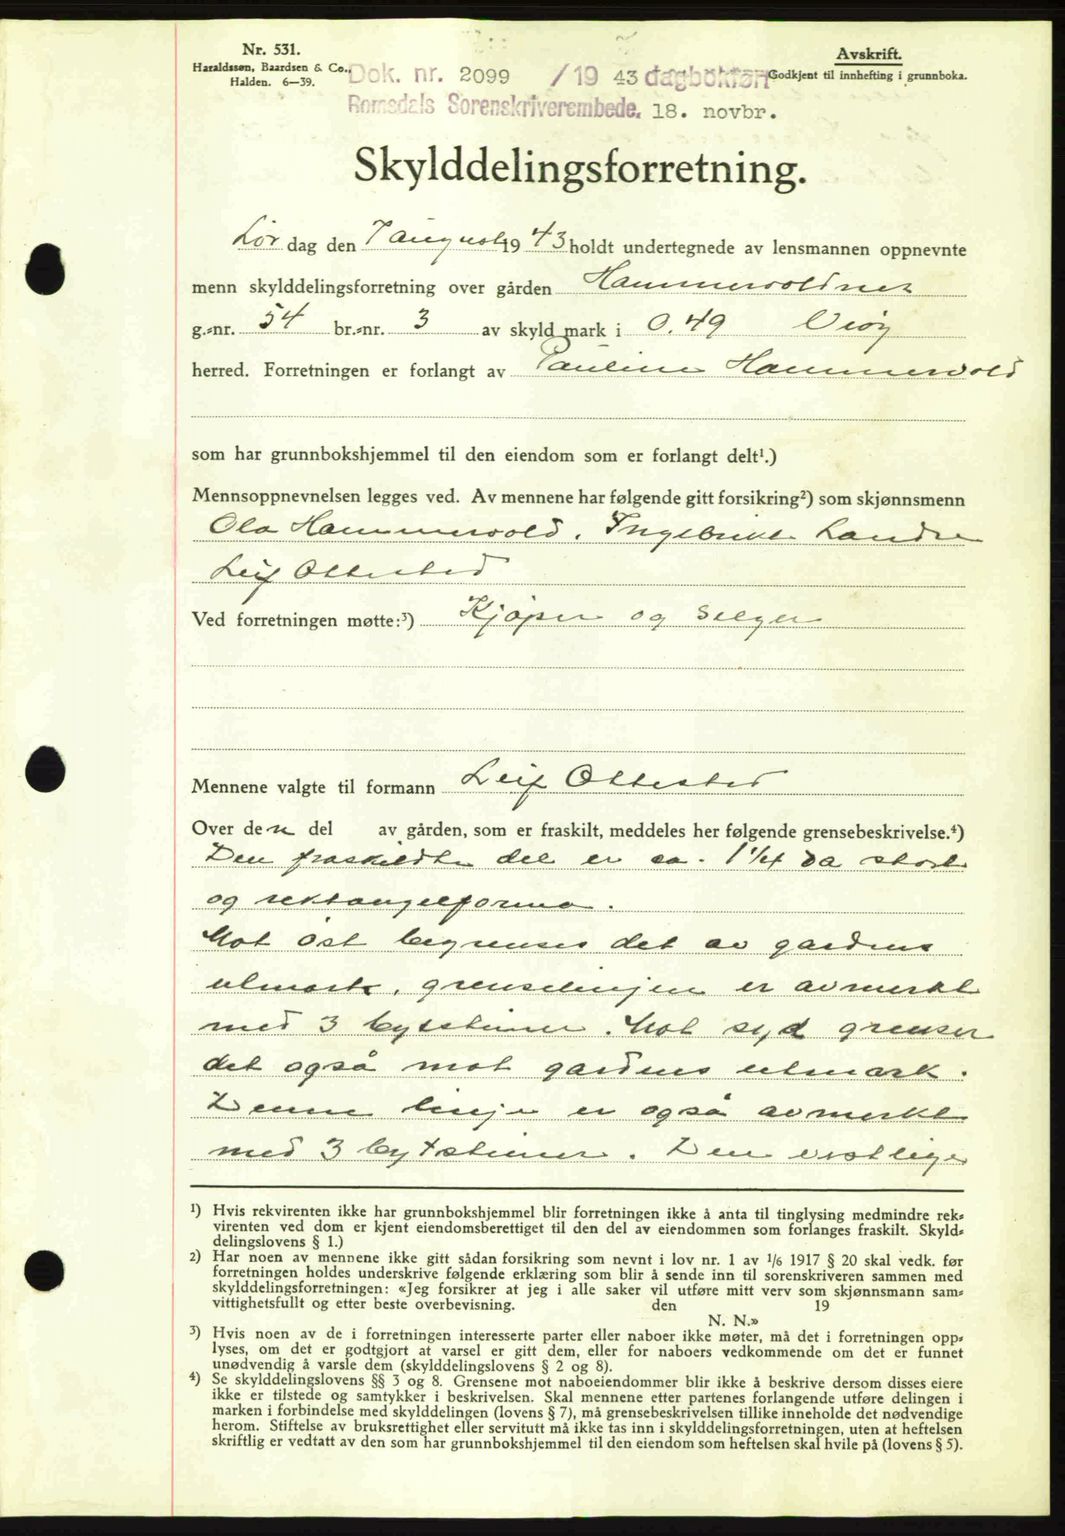 Nr. 531.
Haraldssøn, Baardsen & Co.,
Halden. 6—39.
Avskrift.
Godkjent til innhefting i grunnboka.
Dok. nr. 2099 /19 43 dagbokført
Romsdals Sorenskriverembede. 18. novbr.
Skylddelingsforretning.
Lør dag den 7 august 19 43 holdt undertegnede av lensmannen oppnevnte
menn skylddelingsforretning over gården Hammervoldnes
g.-nr. 54 br.-nr. 3 av skyld mark i 0.49 Veøy
herred. Forretningen er forlangt av Pauline Hammervold
som har grunnbokshjemmel til den eiendom som er forlangt delt¹.)
Mennsoppnevnelsen legges ved. Av mennene har følgende gitt forsikring²) som skjønnsmenn
Ola Hammervold, Ingebrikt Landre
Leif Ottestad
Ved forretningen møtte:³) Kjøper og selger
Mennene valgte til formann Leif Ottestad
Over den del av gården, som er fraskilt, meddeles her følgende grensebeskrivelse.⁴)
Den fraskildte del er ca. 1 1/4 da stort
og rektangelforma.
Mot øst begrenses det av gardens
utmark, grenselinjen er avmerkt
med 3 bytsteiner. Mot syd grenser
det også mot gardens utmark.
Denne linje er også avmerkt
med 3 bytsteiner. Den vestlige
¹) Hvis rekvirenten ikke har grunnbokshjemmel blir forretningen ikke å anta til tinglysing medmindre rek-
virenten ved dom er kjent eiendomsberettiget til den del av eiendommen som forlanges fraskilt. Skyld-
delingslovens § 1.)
²) Har noen av mennene ikke gitt sådan forsikring som nevnt i lov nr. 1 av 1/6 1917 § 20 skal vedk. før
forretningen holdes underskrive følgende erklæring som blir å sende inn til sorenskriveren sammen med
skylddelingsforretningen: «Jeg forsikrer at jeg i alle saker vil utføre mitt verv som skjønnsmann sam-
vittighetsfullt og etter beste overbevisning. den 19
N. N.»
³) Hvis noen av de i forretningen interesserte parter eller naboer ikke møter, må det i forretningen opp-
lyses, om det er godtgjort at varsel er gitt dem, eller for naboers vedkommende om det er funnet
unødvendig å varsle dem (skylddelingslovens § 2 og 8).
⁴) Se skylddelingslovens §§ 3 og 8. Grensene mot naboeiendommer blir ikke å beskrive dersom disses eiere
ikke er tilstede og samtykker i beskrivelsen. Skal mennene etter partenes forlangende utføre delingen i
marken i forbindelse med skylddelingen (lovens § 7), må grensebeskrivelsen tillike inneholde det nødvendige
herom. Stiftelse av bruksrettighet eller servitutt må ikke tas inn i skylddelingsforretningen, uten at heftelsen
skriftlig er vedtatt av den som har grunnbokshjemmel til den eiendom som heftelsen skal hvile på (lovens § 5).